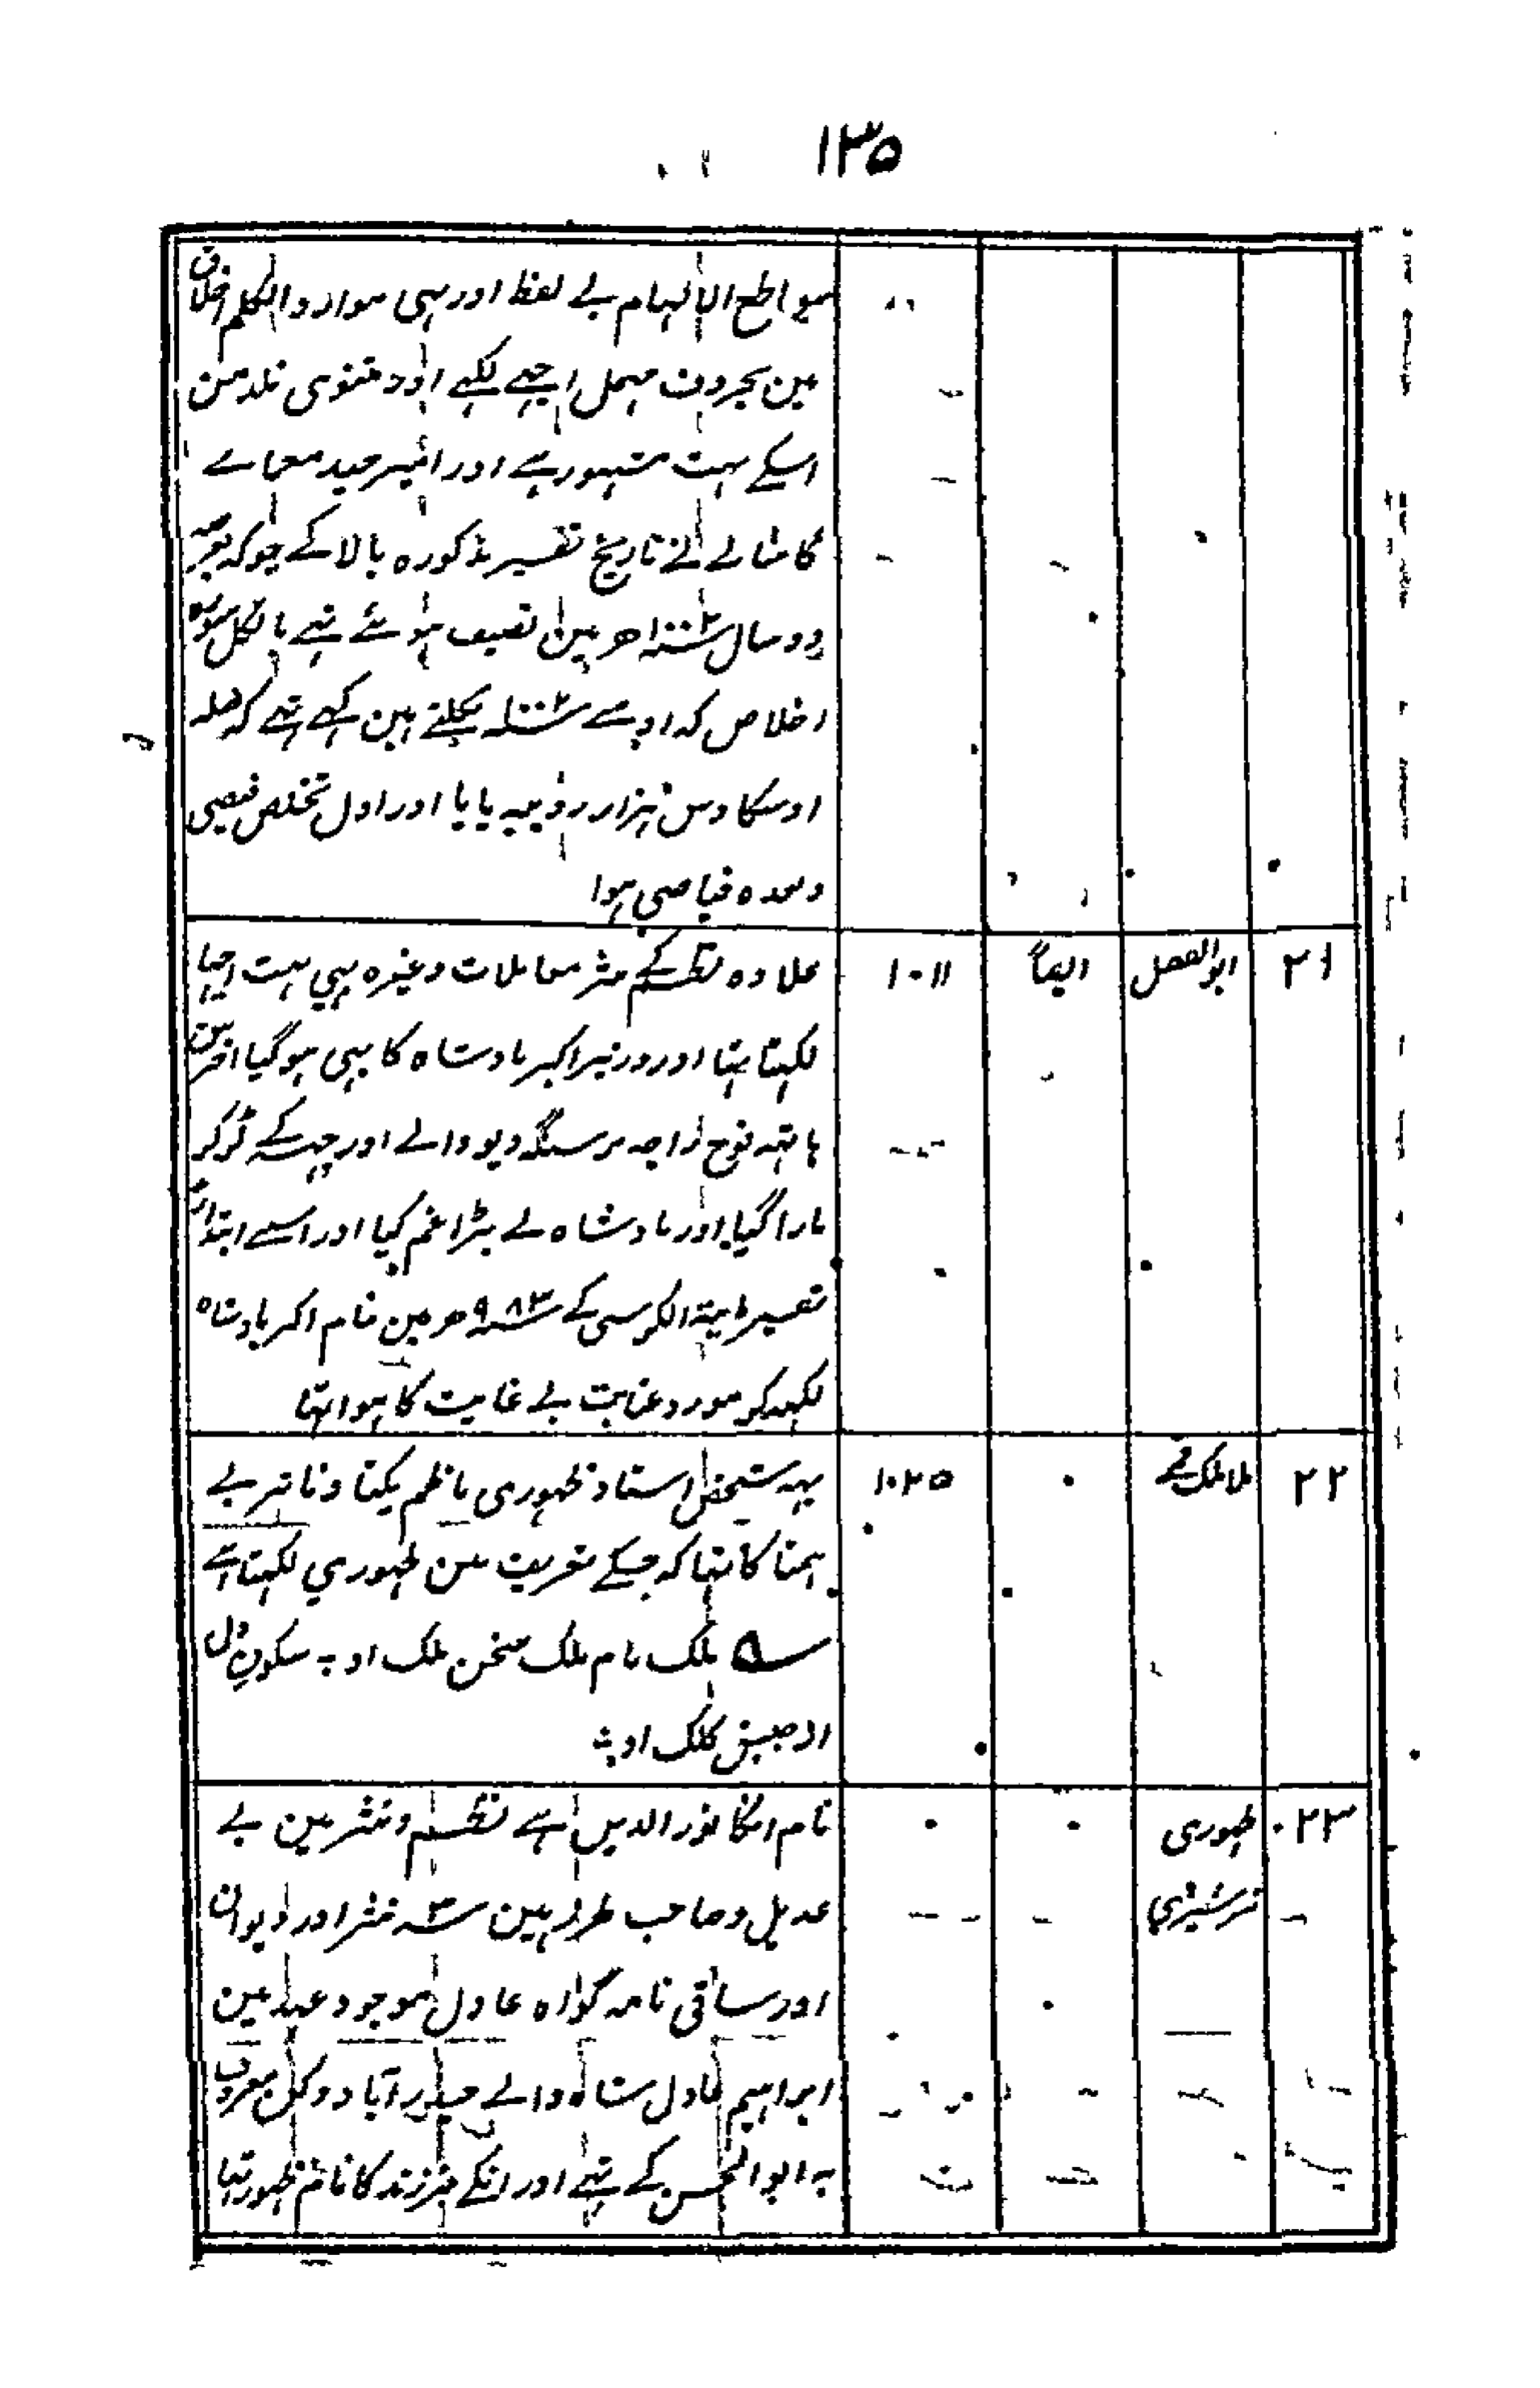 ۱۳۵
سواطع الالہام بے نقط اور ہی موارد الکلم اخلاق
مین بحروف مہمل اچھے لکہے اور مثنوی نلدمن
اسکے بہت مشہور ہے اور امیر حیدر معمائے
کاشانے نے تاریخ تفسیر مذکورہ بالا کے جوکہ بعرصہ
دو سال سنہ ۱۰۰۲ ھ مین تصنیف ہوئے تہے بالکل سورہ
اخلاص کہ اوسے سنہ ۱۰۰۲ نکلتے ہین کہے تہے کہ صلہ
اوسکا دس ہزار روپیہ پایا اور اول تخلص فیضی
وبعدہ فیاضی ہوا
۲۱ ابوالفضل ایضاً ۱۰۱۱ علاوہ نظم کے نثر معاملات وغیرہ بہی بہت اچہا
لکہتا تہا اور وزیر اکبر بادشاہ کا بہی ہوگیا آخرین
ہاتہہ فوج راجہ نرسنگہ دیو والے اورچہہ کے لڑکر
مارا گیا اور بادشاہ نے بڑا غم کیا اور اسے ابتداءً
تفسیر آیۃ الکرسی کے سنہ ۹۸۳ ھ مین بنام اکبر بادشاہ
لکہہ کر مورد عنایت بے غایت کا ہوا تہا
۲۲ ملا ملک قمے ۰ ۱۰۲۵ یہہ شخص استاد ظہوری ناظم یکتا و ناثر بے
ہمتا کا تہا کہ جسکے تعریف مین ظہوری لکہتا ہے
؎ ملک نام ملک سخن ملک او بہ سکون دل
از جنبش کلک او
۲۳ ظہوری ۰ ۰ نام انکا نور الدین ہے نظم و نثر مین بے
ترشیزی عدیل و صاحب طرز ہین سہ نثر اور دیوان
اور ساقی نامہ گواہ عادل موجود عہد مین
ابراہیم عادل شاہ والے حیدرآباد دکن معروف
بہ ابوالحسن کے تہے اور انکے فرزند کا نام ظہور تہا